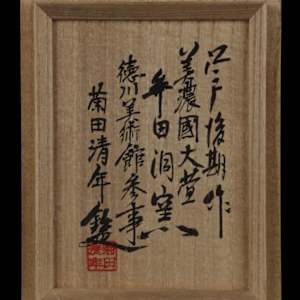 江戸後期作
美濃國大萱
牟田洞窯
徳川美術館参事
菊田清年鑑